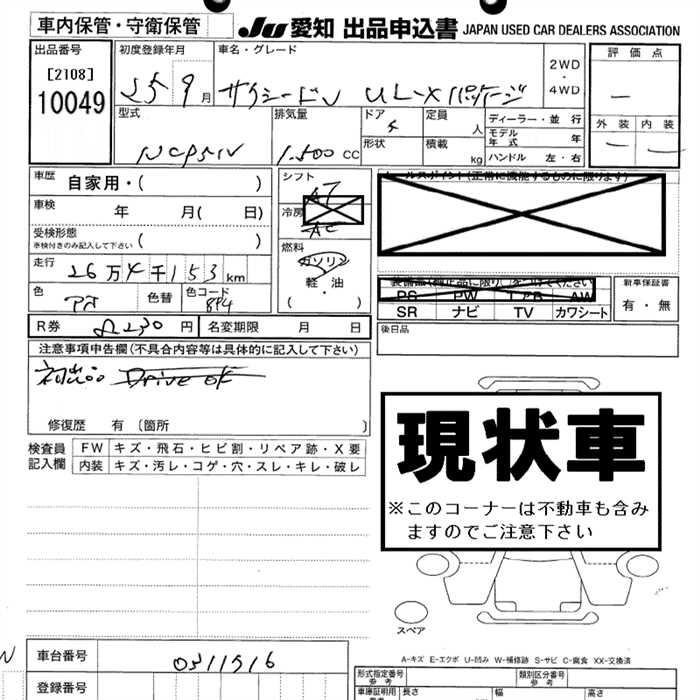 車内保管・守衛保管 JU 愛知 出品申込書 JAPAN USED CAR DEALERS ASSOCIATION
出品番号 初度登録年月 車名・グレード 2WD ・ 4WD 評価点
[2108]
10049
25 9月 サクシードV UL-X パッケージ
型式 排気量 ドア 定員 人 ディーラー・並行
外装 内装
NCP51V 1.500 CC 5 形状 積載 kg
モデル年式 年
ハンドル 左・右
車歴 自家用・( )
シフト AT
車検 年 月( 日)
冷房 AC
受検形態 ( )
車検付きのみ記入して下さい
燃料 ガソリン 軽・油 ( )
走行 26万4千153km
色 アオ 色替 色コード 8P4
R券 230円 名変期限 月 日
セールスポイント(正常に機能するものに限ります)
装備品(純正品に限り○をつけてください)
PS PW エアB AW
SR ナビ TV カワシート
新車保証書
有・無
後日品
注意事項申告欄(不具合内容等は具体的に記入して下さい)
初出品 Drive OK
修復歴 有 [箇所 ]
検査員記入欄
FW キズ・飛石・ヒビ割・リペア跡・X要
内装 キズ・汚レ・コゲ・穴・スレ・キレ・破レ
現状車
※このコーナーは不動車も含み
ますのでご注意下さい
スペア
A-キズ E-エクボ U-凹み W-補修跡 S-サビ C-腐食 XX-交換済
車台番号 0311516
登録番号
形式指定番号 参考
類別区分番号 参考
車庫証明用 長さ 幅 高さ